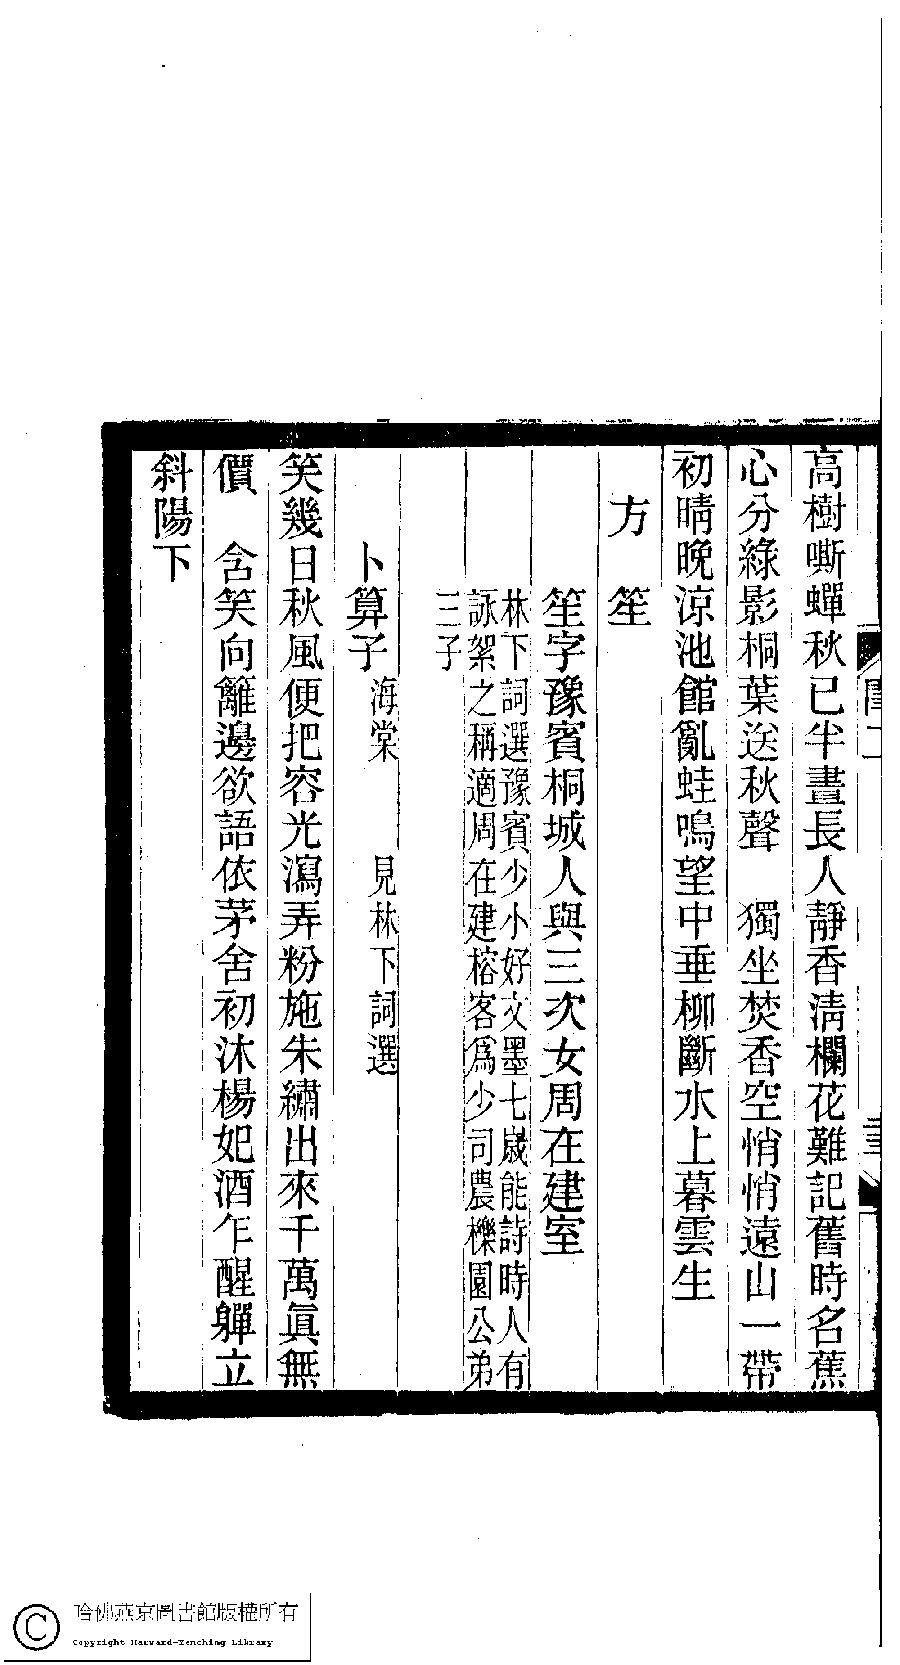 高樹嘶蟬秋已半晝長人靜香淸欄花難記舊時名蕉
心分綠影桐葉送秋聲　獨坐焚香空悄悄遠山一帶
初晴晚涼池館亂蛙鳴望中垂柳斷水上暮雲生
方　笙
笙字豫賓桐城人與三次女周在建室
林下詞選豫賓少小好文墨七歲能詩時人有
詠絮之稱適周在建榕客爲少司農櫟園公弟
三子
卜算子　海棠　見林下詞選
笑幾日秋風便把容光瀉弄粉施朱繡出來千萬眞無
價　含笑向籬邊欲語依茅舍初沐楊妃酒乍醒嚲立
斜陽下
哈佛燕京圖書館版權所有
Copyright Harvard-Yenching Library